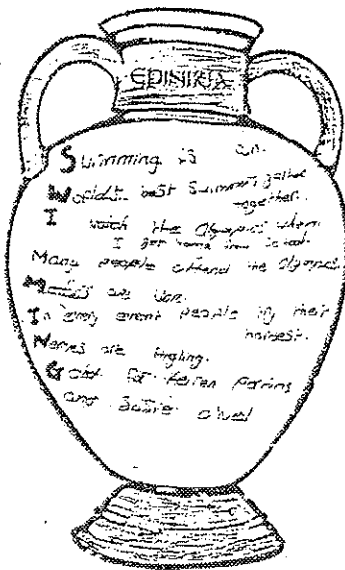 EPINIKIA
Swimming is on.
Worlds best Swimmers gather
together.
I watch the Olympics when
I get home from school.
Many people attend the Olympics.
Medals are Won.
In every event people try their
hardest.
Nerves are tingling.
Gold for Kieren Perkins
and